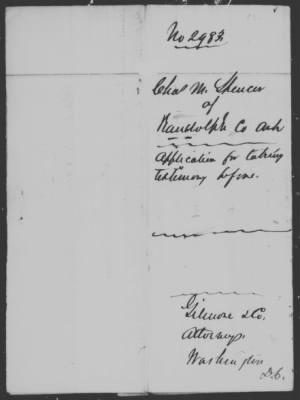 No 2983
Chas M. Spencer
of
Randolph Co Ark
Application for taking
testimony before.
Gilmore & Co.
Attorneys
Washington
D.C.